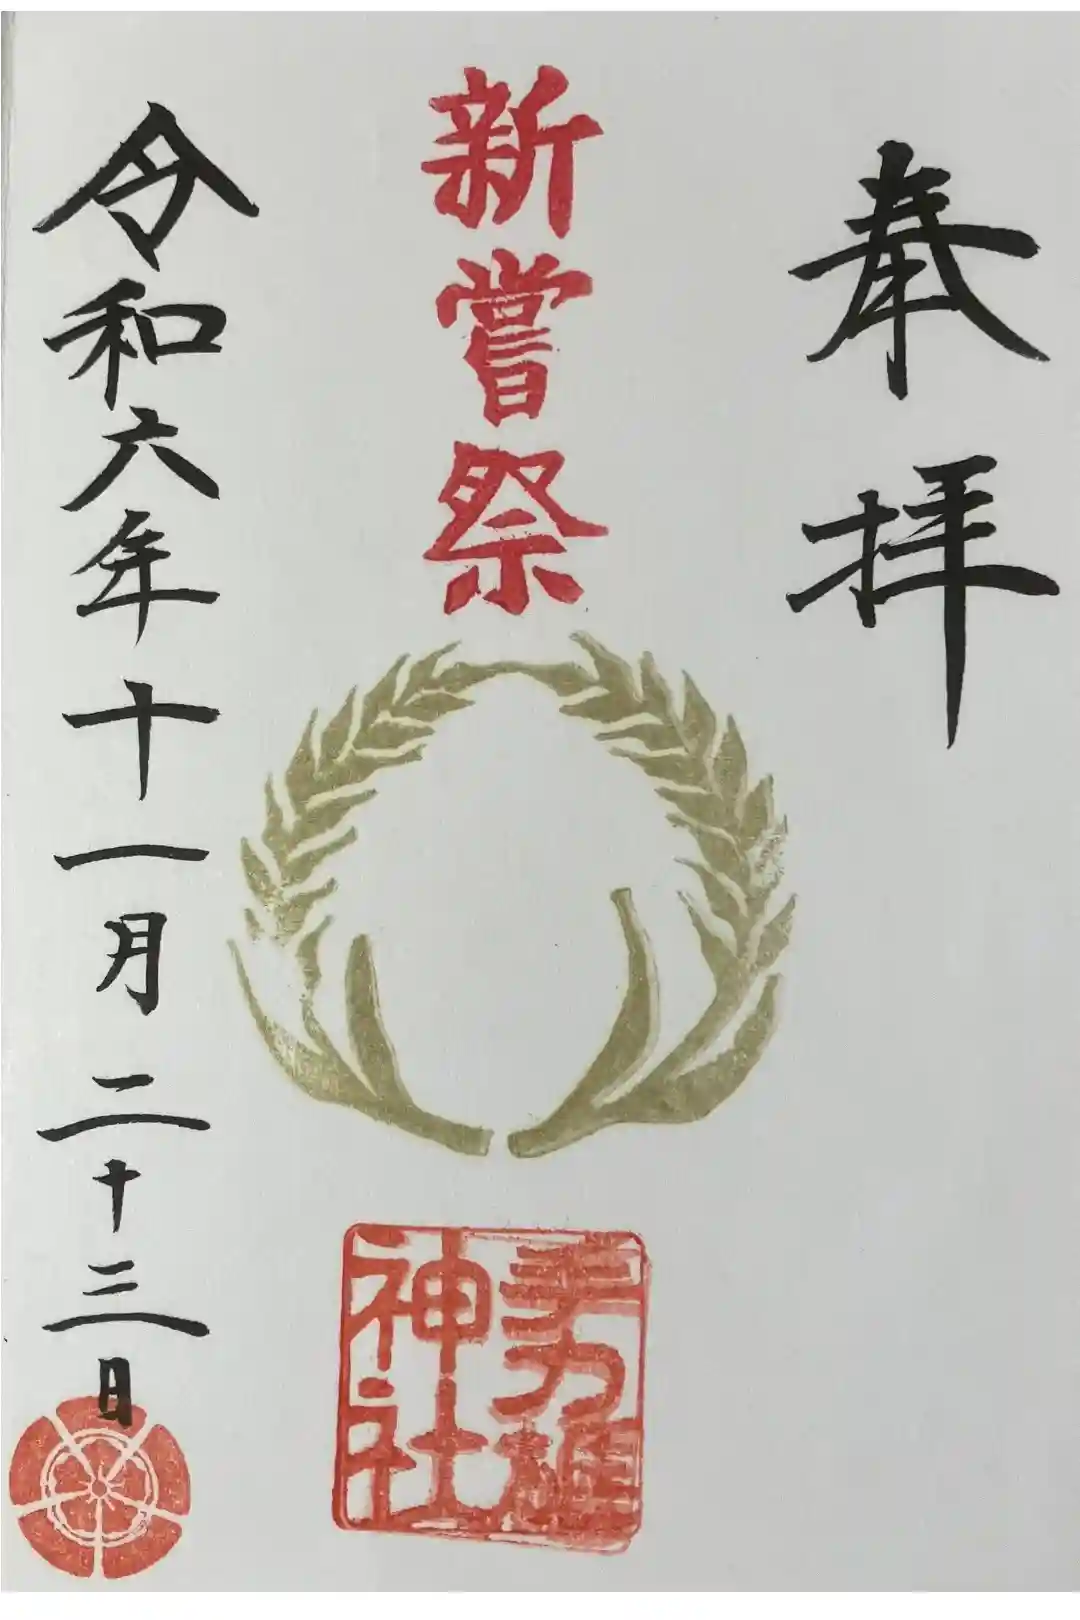 奉拝
新嘗祭
手力雄
神社
令和六年十一月二十三日